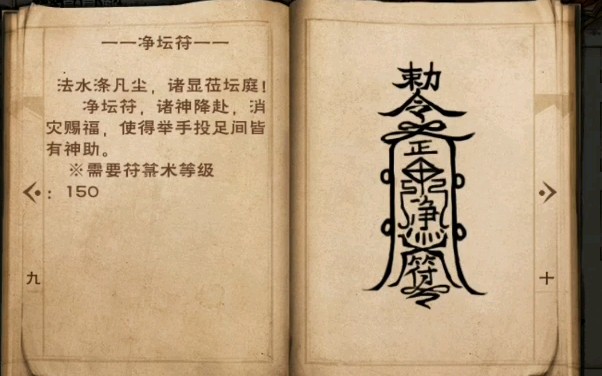 ——净坛符——
法水涤凡尘，诸显莅坛庭！
净坛符，诸神降赴，消
灾赐福，使得举手投足间皆
有神助。
※需要符箓术等级
：150
九
勅令
正
净
符
十